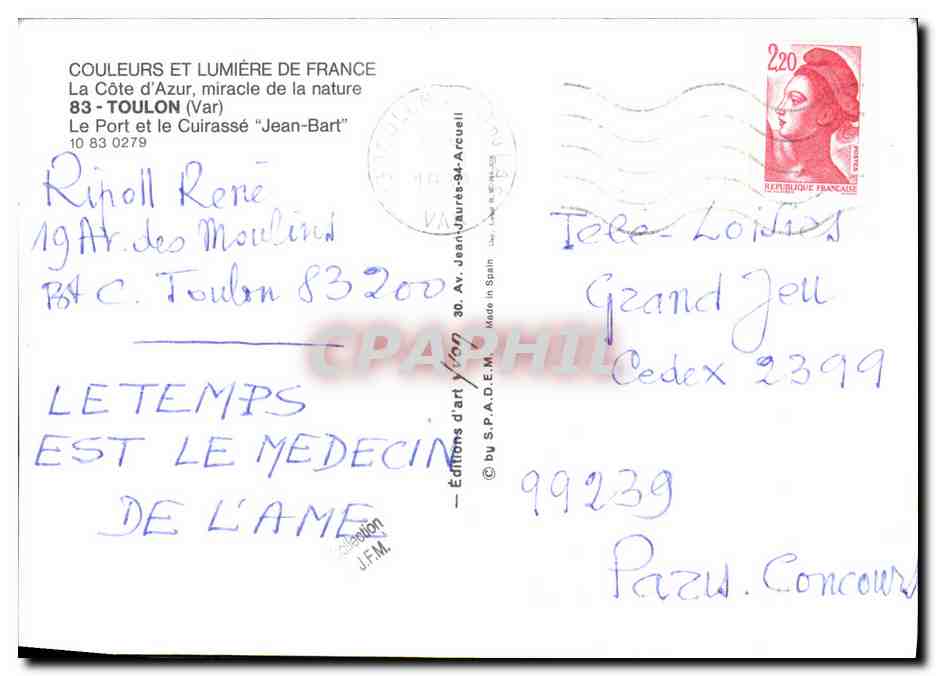 COULEURS ET LUMIÈRE DE FRANCE
La Côte d'Azur, miracle de la nature
83 - TOULON (Var)
Le Port et le Cuirassé "Jean-Bart"
10 83 0279
Ripoll René
19 Av. des Moulins
Bt C. Toulon 83200
LE TEMPS
EST LE MEDECIN
DE L'AME
Collection
J.F.M.
— Éditions d'art Yvon 30. Av. Jean-Jaurès-94-Arcueil
© by S.P.A.D.E.M. Made in Spain
CPAPHIL
VAR
2,20
POSTES
REPUBLIQUE FRANÇAISE
Télé-Loisirs
Grand Jeu
Cedex 2399
99239
Paris. Concours